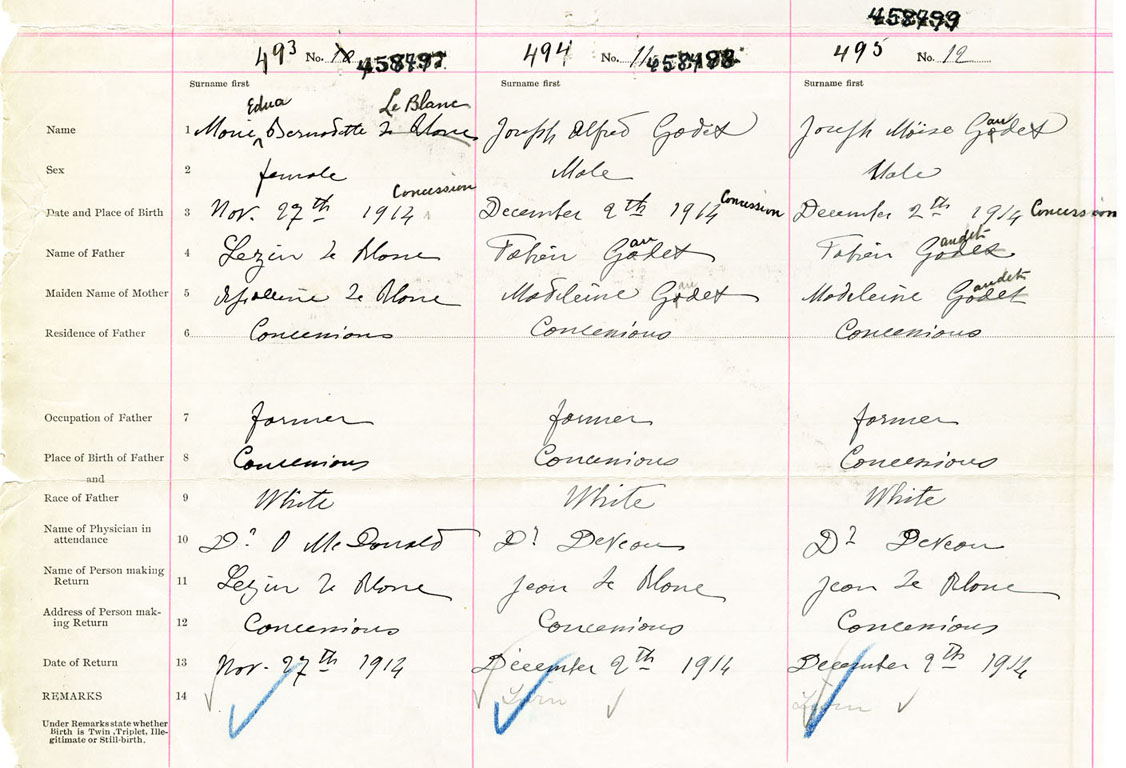 458799
493 No. 458797 494 No. 11 458798 495 No. 12
Surname first Surname first Surname first
Edna Le Blanc
Name 1 Marie Bernadette Le Blanc Joseph Alfred Godet Joseph Moïse Godet au
Sex 2 female Male Male
Concession
Date and Place of Birth 3 Nov. 27th 1914 December 2th 1914 Concession December 2th 1914 Concession
au audet
Name of Father 4 Lezin Le Blanc Fabien Godet Fabien Godet
au audet
Maiden Name of Mother 5 Le Blanc Madeleine Godet Madeleine Godet
Residence of Father 6 Concessions Concessions Concessions
Occupation of Father 7 farmer farmer farmer
Place of Birth of Father 8 Concessions Concessions Concessions
and
Race of Father 9 White White White
Name of Physician in
attendance 10 Dr O McDonald Dr DeVeau Dr DeVeau
Name of Person making
Return 11 Lezin Le Blanc Jean Le Blanc Jean Le Blanc
Address of Person mak-
ing Return 12 Concessions Concessions Concessions
Date of Return 13 Nov. 27th 1914 December 9th 1914 December 9th 1914
REMARKS 14 Twin Twin
Under Remarks state whether
Birth is Twin, Triplet, Ille-
gitimate or Still-birth.